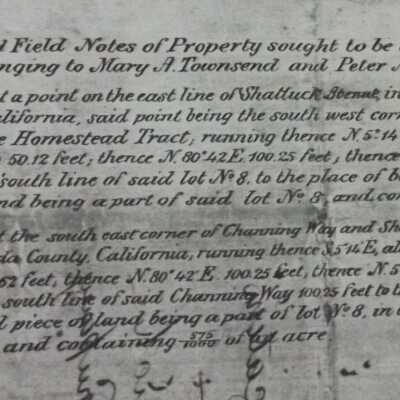 Field Notes of Property sought to be
nging to Mary A. Townsend and Peter
t a point on the east line of Shattuck Avenue, in
alifornia, said point being the south west corn
e Homestead Tract; running thence N. 5° 14'
50.12 feet; thence N. 80° 42' E. 100.25 feet; thence
south line of said lot No 8, to the place of b
nd being a part of said lot No 8, and con
t the south east corner of Channing Way and Sh
da County, California, running thence S. 5° 14' E, al
62 feet, thence N. 80° 42' E. 100.25 feet, thence N. 5
south line of said Channing Way 100.25 feet to th
l piece of land being a part of lot No 8, in
and containing 575/1000 of an acre.